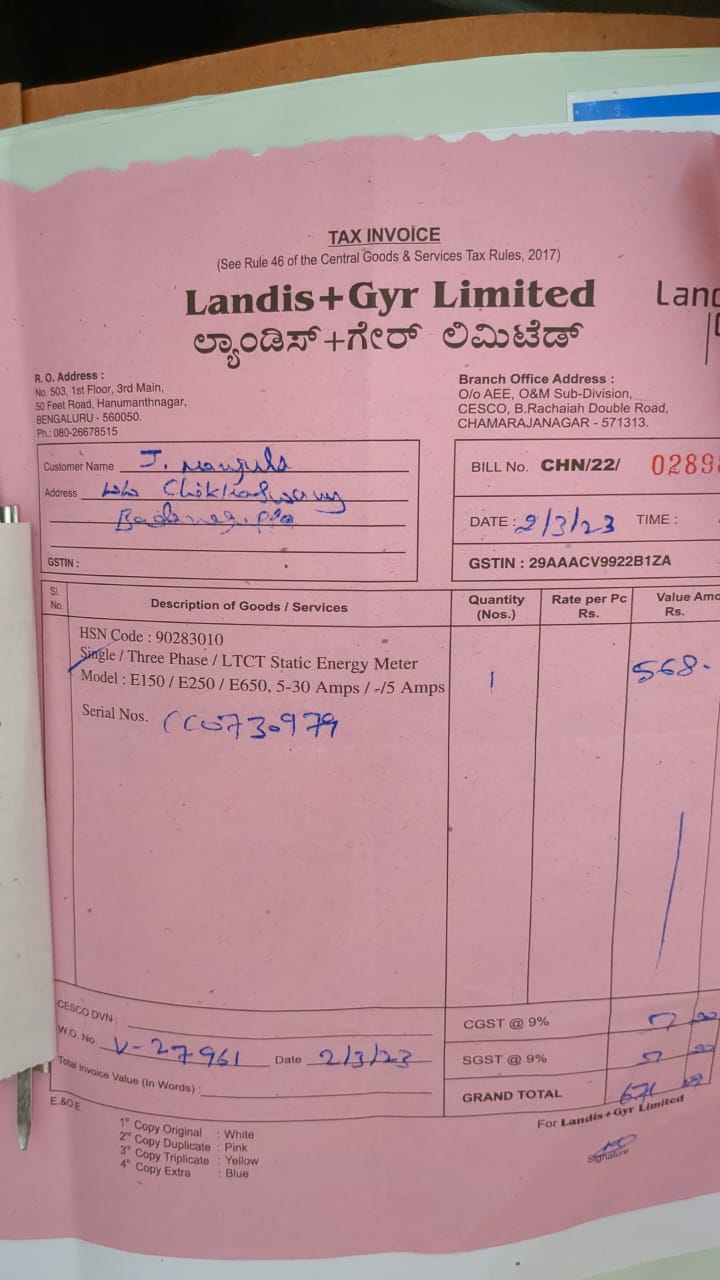 TAX INVOICE
(See Rule 46 of the Central Goods & Services Tax Rules, 2017)
Landis+Gyr Limited
Land
ಲ್ಯಾಂಡಿಸ್+ಗೇರ್ ಲಿಮಿಟೆಡ್
R. O. Address :
No. 503, 1st Floor, 3rd Main,
50 Feet Road, Hanumanthnagar,
BENGALURU - 560050.
Ph.: 080-26678515
Branch Office Address :
O/o AEE, O&M Sub-Division,
CESCO, B.Rachaiah Double Road,
CHAMARAJANAGAR - 571313.
Customer Name J. Manjula
Address
GSTIN :
BILL No. CHN/22/ 0289
DATE : 2/3/23 TIME :
GSTIN : 29AAACV9922B1ZA
Sl. No. Description of Goods / Services Quantity (Nos.) Rate per Pc Rs. Value Amo Rs.
HSN Code : 90283010
Single / Three Phase / LTCT Static Energy Meter
Model : E150 / E250 / E650, 5-30 Amps / -/5 Amps 1 568.
Serial Nos. 730979
CESCO DVN :
W.O. No. V-27961 Date 2/3/23
Total Invoice Value (In Words) :
E.&O.E
CGST @ 9%
SGST @ 9%
GRAND TOTAL 671
1st Copy Original : White
2nd Copy Duplicate : Pink
3rd Copy Triplicate : Yellow
4th Copy Extra : Blue
For Landis+Gyr Limited
Signature